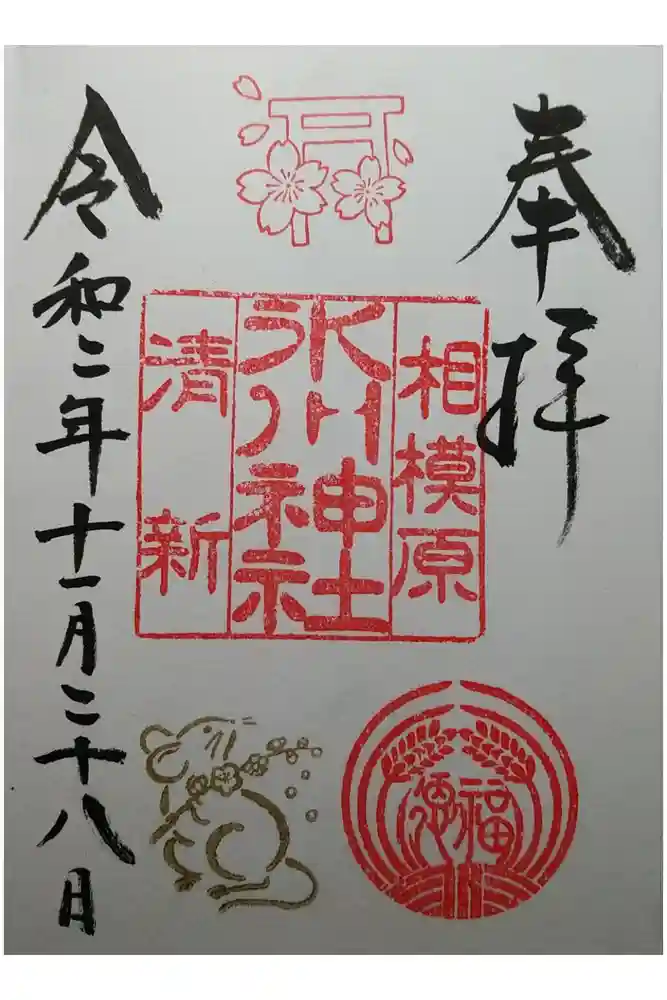 奉拝
相模原
氷川神社
清新
令和二年十一月二十八日
福